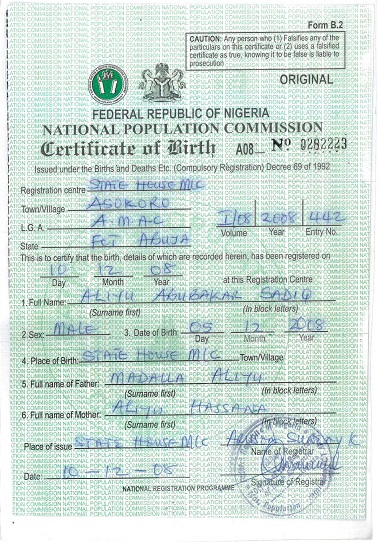 Form B.2
CAUTION: Any person who (1) Falsifies any of the
particulars on this certificate or (2) uses a falsified
certificate as true, knowing it to be false is liable to
prosecution
ORIGINAL
FEDERAL REPUBLIC OF NIGERIA
NATIONAL POPULATION COMMISSION
Certificate of Birth A08 Nº 0282223
Issued under the Births and Deaths Etc. (Compulsory Registration) Decree 69 of 1992
Registration centre STATE HOUSE M/C
Town/Village ASOKORO
L.G.A. A.M.A.C I/08 2008 442
Volume Year Entry No.
State FCT ABUJA
This is to certify that the birth, details of which are recorded herein, has been registered on
10 12 08 at this Registration Centre
Day Month Year
1. Full Name: ALIYU ABUBAKAR SADIQ
(Surname first) (In block letters)
2. Sex: MALE 3. Date of Birth: 05 12 2008
Day Month Year
4. Place of Birth: STATE HOUSE M/C Town/Village
5. Full name of Father: MADALLA ALIYU
(Surname first) (In block letters)
6. Full name of Mother: ALIYU HASSANA
(Surname first) (In block letters)
Place of issue STATE HOUSE M/C SUNDAY K.
Name of Registrar
Date: 10-12-08
Signature of Registrar
NATIONAL REGISTRATION PROGRAMME